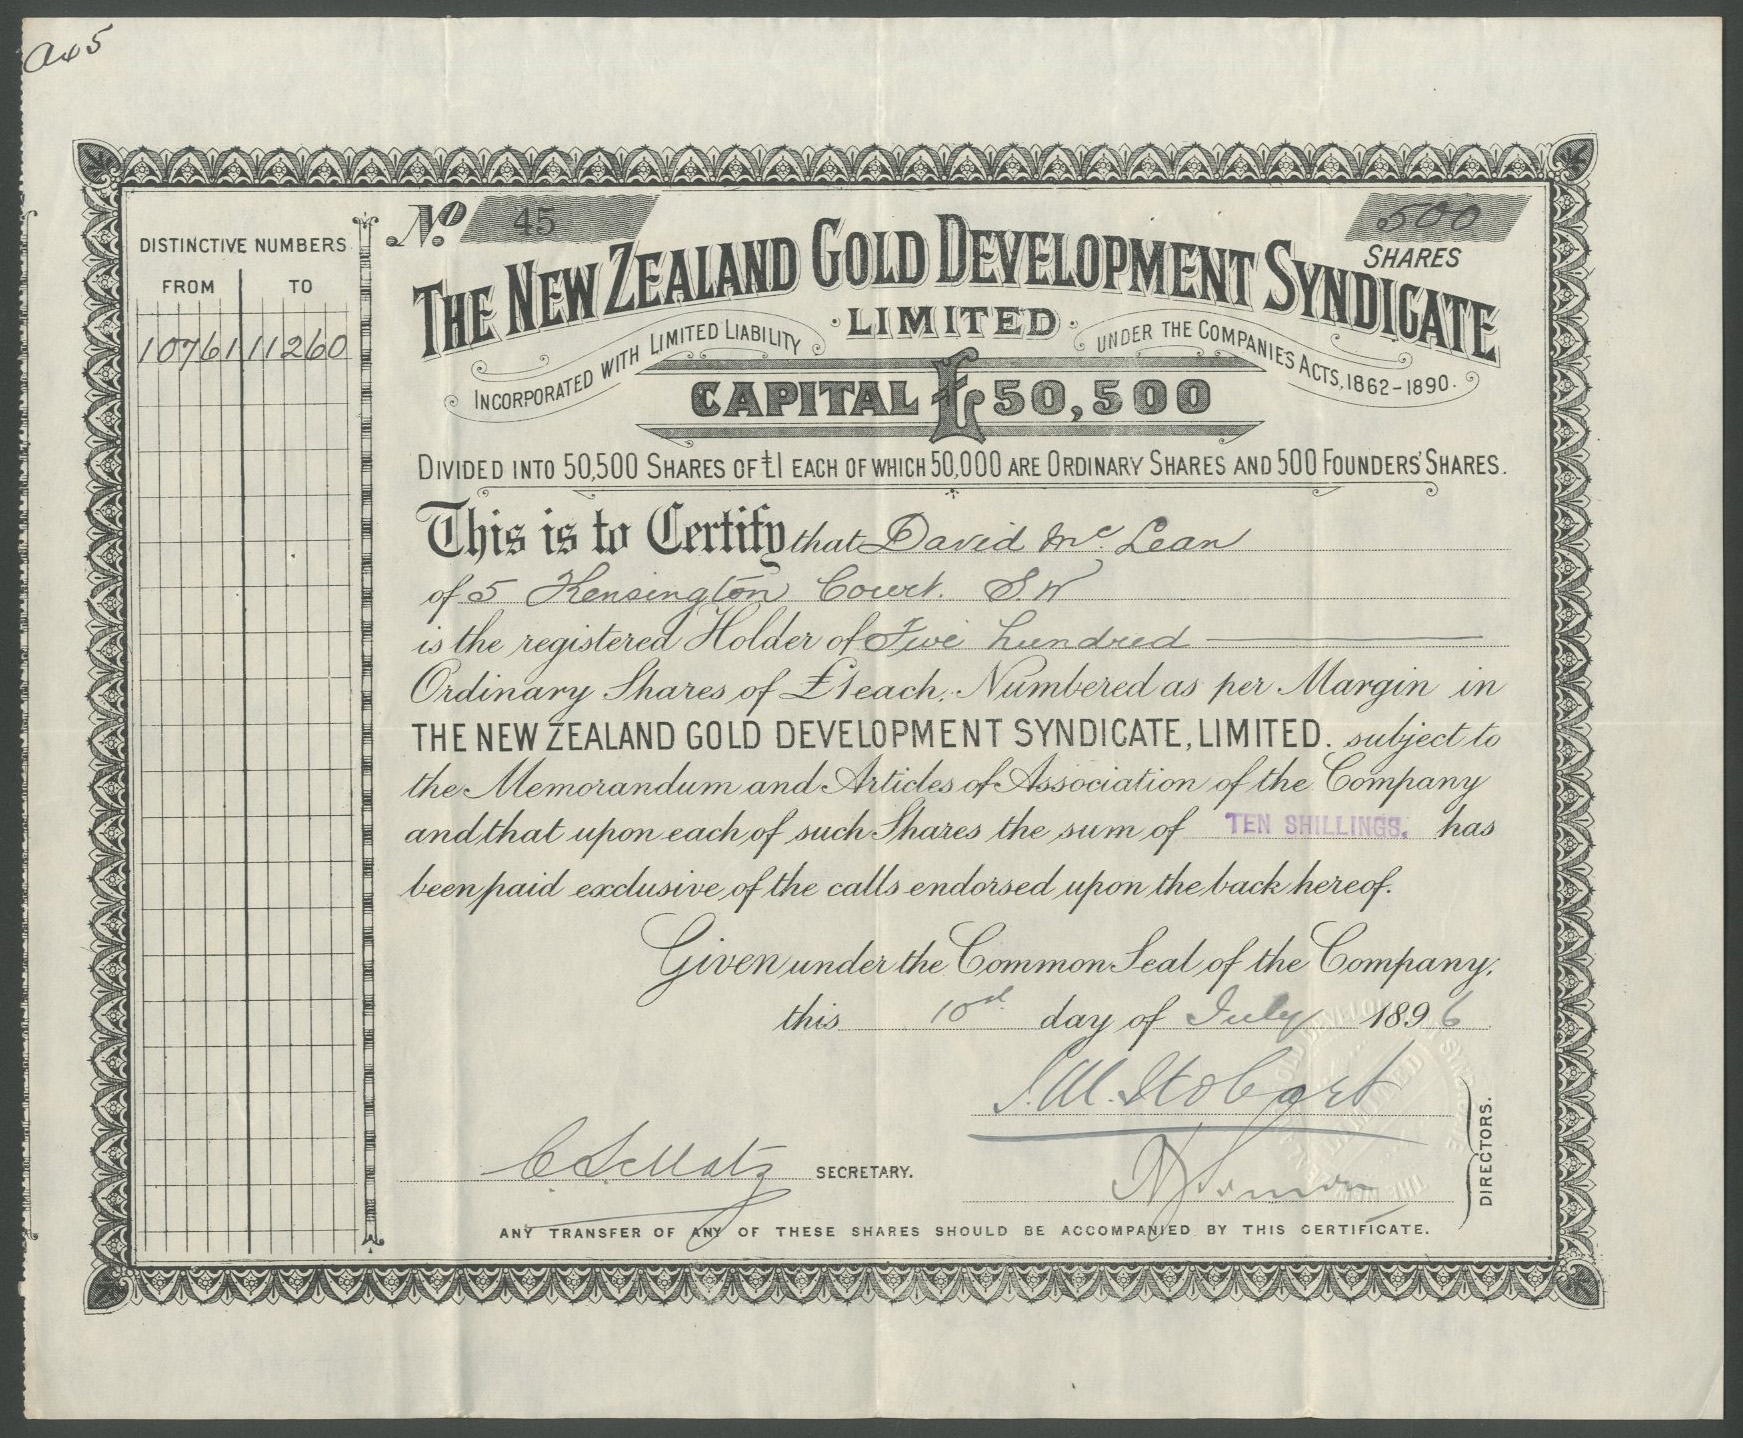 No. 45
500
SHARES
DISTINCTIVE NUMBERS
FROM TO
10761 11260
THE NEW ZEALAND GOLD DEVELOPMENT SYNDICATE
LIMITED
INCORPORATED WITH LIMITED LIABILITY UNDER THE COMPANIES ACTS, 1862-1890.
CAPITAL £50,500
DIVIDED INTO 50,500 SHARES OF £1 EACH OF WHICH 50,000 ARE ORDINARY SHARES AND 500 FOUNDERS' SHARES.
This is to Certify that David Mc. Lean
of 5 Kensington Court. S.W
is the registered Holder of Five hundred
Ordinary Shares of £1 each, Numbered as per Margin in
THE NEW ZEALAND GOLD DEVELOPMENT SYNDICATE, LIMITED. subject to
the Memorandum and Articles of Association of the Company
and that upon each of such Shares the sum of TEN SHILLINGS. has
been paid exclusive of the calls endorsed upon the back hereof.
Given under the Common Seal of the Company,
this 10 day of July 1896
Stobart
SECRETARY.
DIRECTORS.
ANY TRANSFER OF ANY OF THESE SHARES SHOULD BE ACCOMPANIED BY THIS CERTIFICATE.